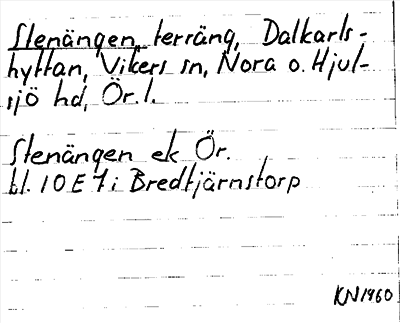 Stenängen, terräng, Dalkarls-
hyttan, Vikers sn, Nora o. Hjul-
sjö hd, Ör. l.
Stenängen ek Ör.
bl. 10 E 7 i Bredtjärnstorp
KN 1960